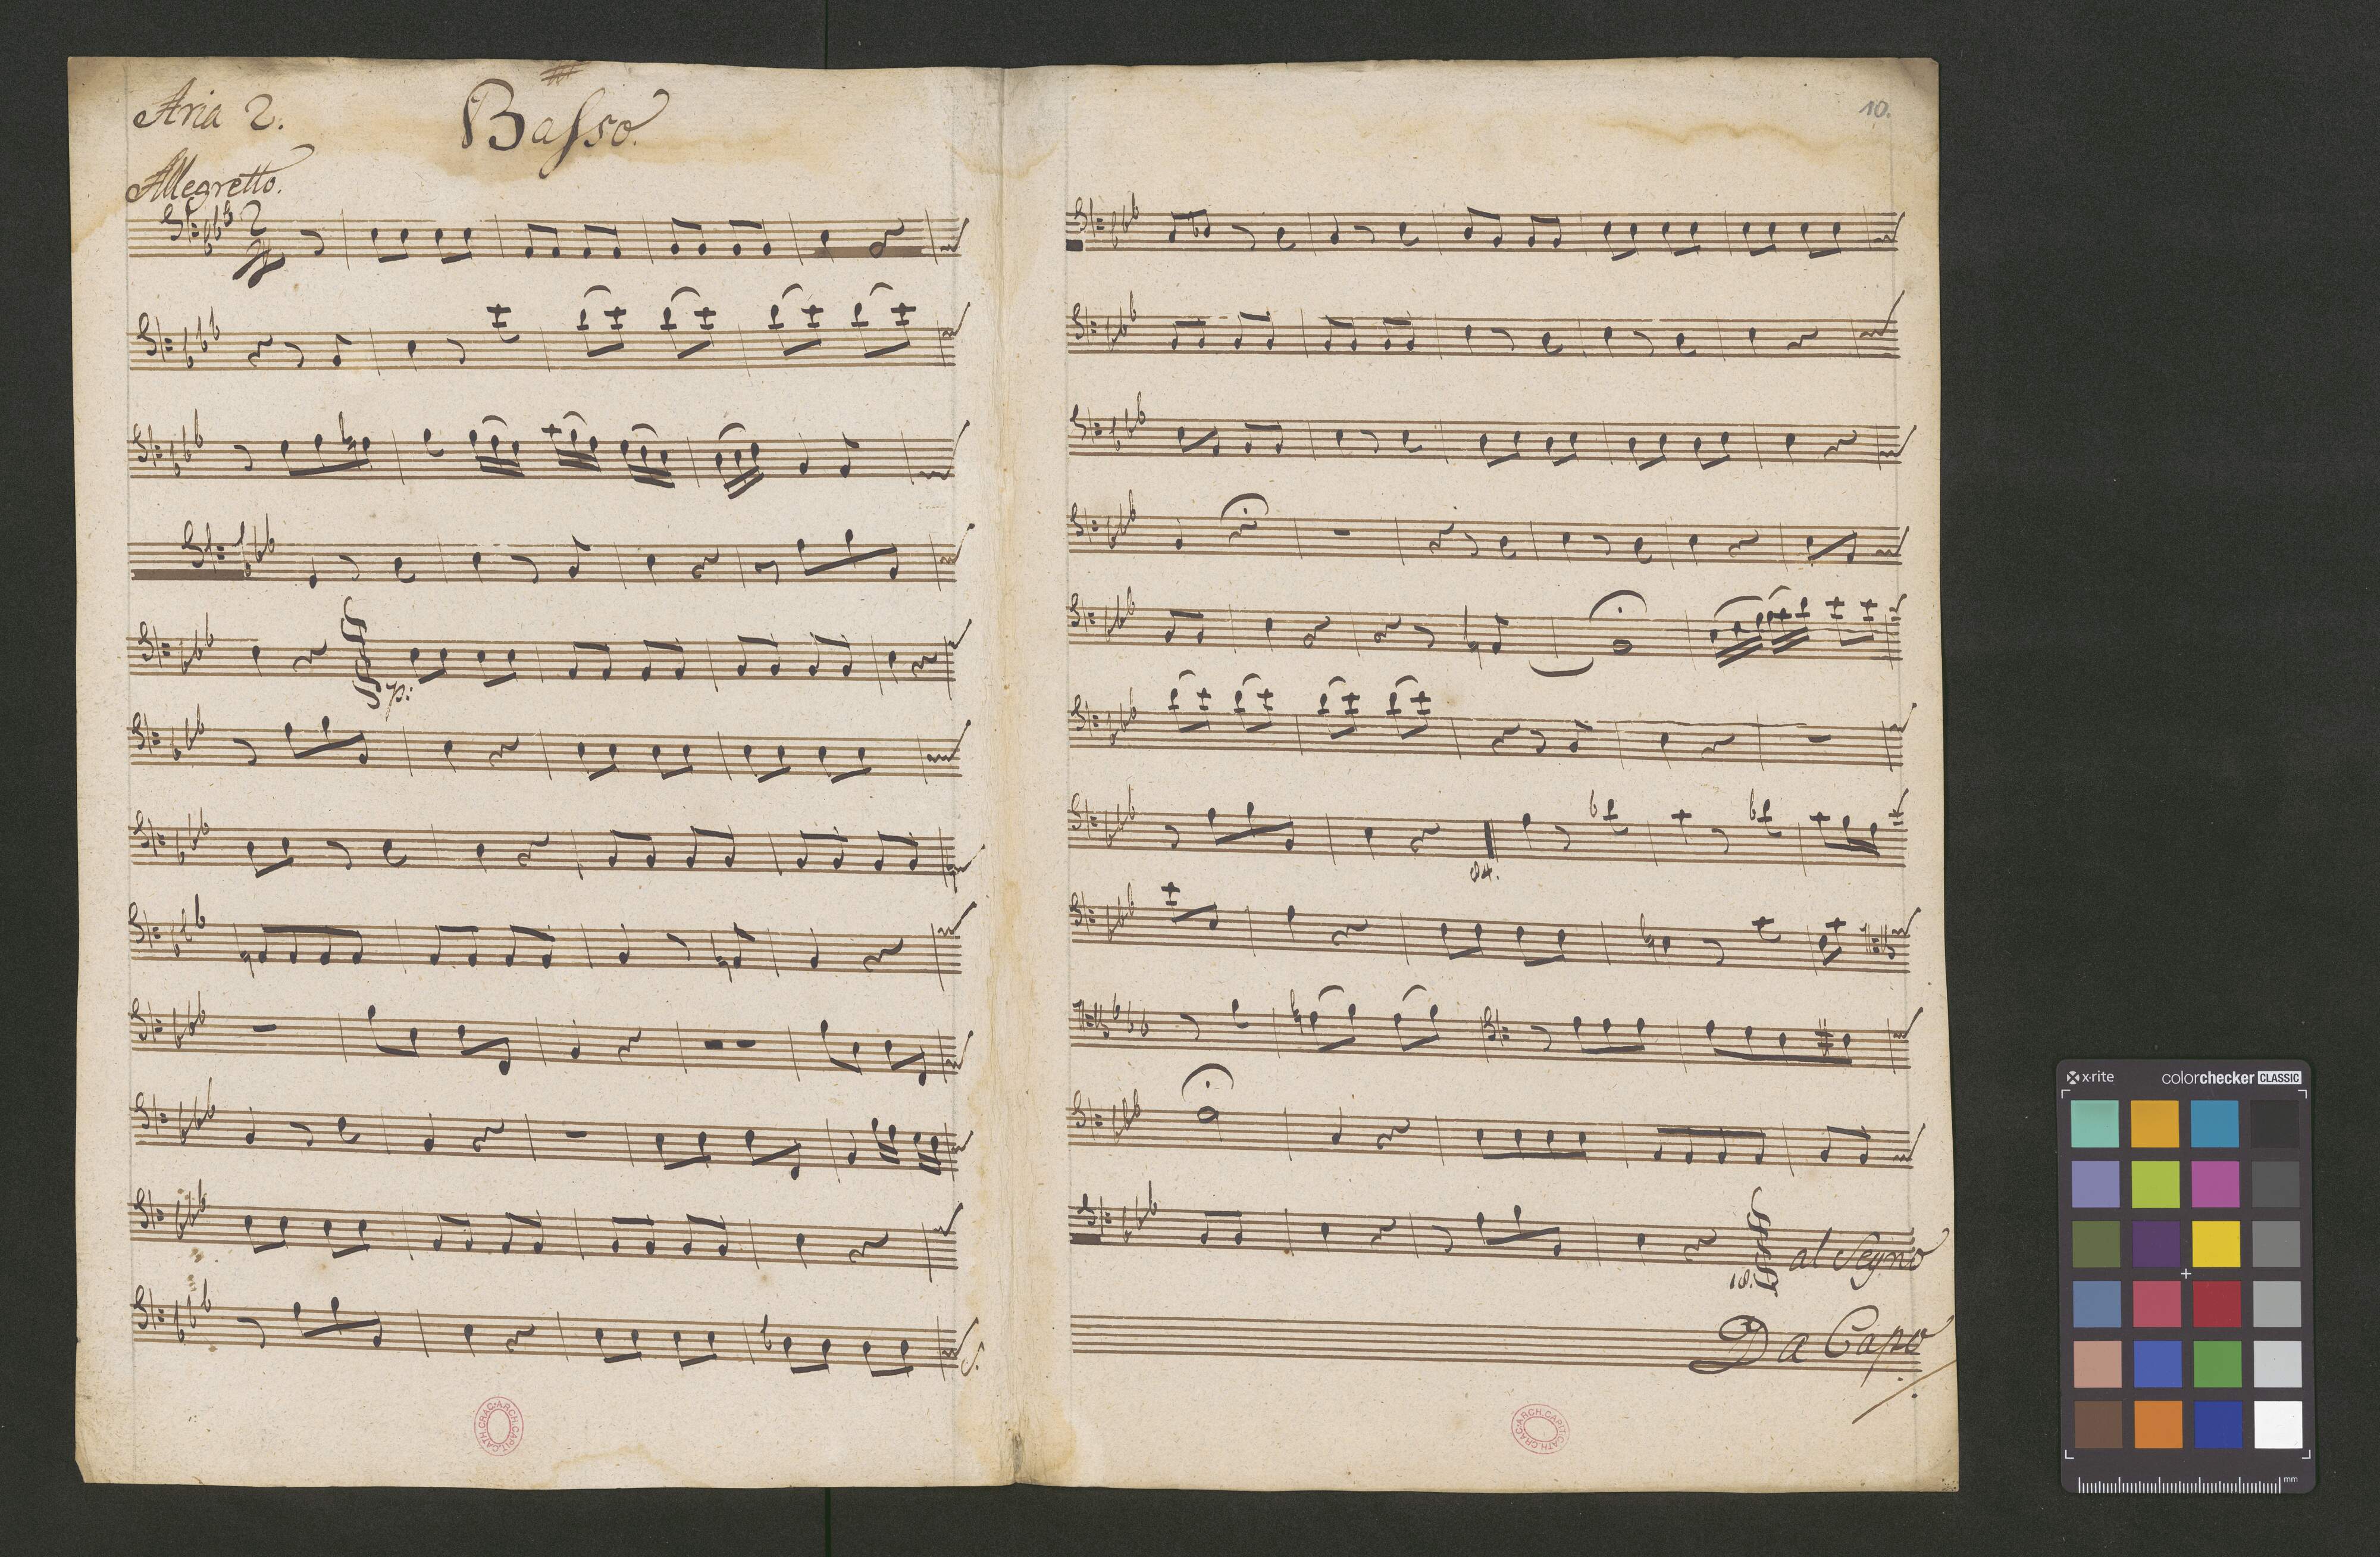 Aria 2.
Basso.
Allegretto.
p:
S.
10.
84.
18.
al Segno
Da Capo
ARCH.CAPIT.CATH.CRAC.
ARCH.CAPIT.CATH.CRAC.
x-rite
colorchecker CLASSIC
mm